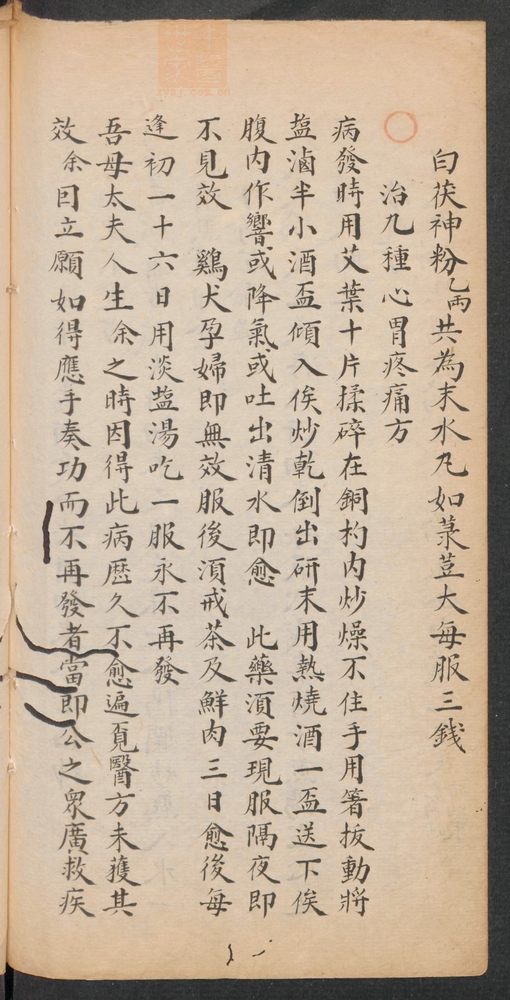 白茯神粉乙兩共為末水丸如菉荳大每服三錢
治九種心胃疼痛方
病發時用艾葉十片揉碎在銅杓內炒燥不住手用箸抜動將
塩滷半小酒盃傾入俟炒乾倒出研末用熱燒酒一盃送下俟
腹內作響或降氣或吐出清水即愈 此藥湏要現服隔夜即
不見效 鷄犬孕婦即無效服後湏戒茶及鮮肉三日愈後每
逢初一十六日用淡塩湯吃一服永不再發
吾母太夫人生余之時因得此病歷久不愈遍覓醫方未獲其
效余因立願如得應手奏功而不再發者當即公之眾廣救疾